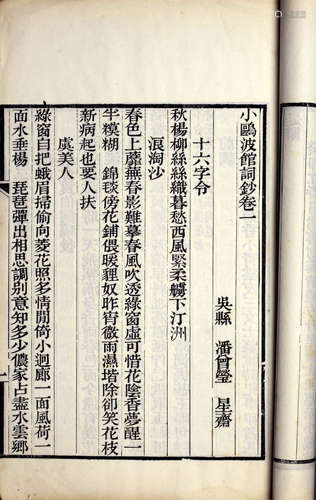 小鷗波館詞鈔卷一
吳縣 潘曾瑩 星齋
十六字令
秋楊柳絲絲織暮愁西風緊柔艣下汀洲
浪淘沙
春色上蘼蕪春影難摹春風吹透綠窗虛可惜花陰香夢醒一
半糢糊 錦毯傍花鋪偎暖貍奴昨宵微雨濕堦除卻笑花枝
新病起也要人扶
虞美人
綠窗自把蛾眉掃偷向菱花照多情閒倚小迴廊一面風荷一
面水垂楊 琵琶彈出相思調別意知多少儂家占盡水雲鄉